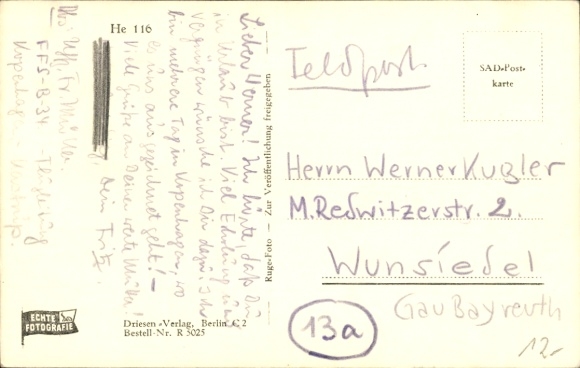 He 116
Lieber Werner! Ich hörte, daß Du
in Urlaub bist. Viel Erholung und
Vergnügen wünsche ich Dir dazu! Ich
bin mehrere Tage in Kopenhagen, wo
es uns ausgezeichnet geht! –
Viele Grüße an Deine werte Mutter!
Dein Fritz.
Uffz. Fr. Müller
FFS-B-34
Kopenhagen -
Ruge-Foto — Zur Veröffentlichung freigegeben
Feldpost.
SAD-Post-
karte
Herrn Werner Kugler
M. Redwitzerstr. 2.
Wunsiedel
Gau Bayreuth
13a
12.-
ECHTE
FOTOGRAFIE
Driesen-Verlag, Berlin C 2
Bestell-Nr. R 3025